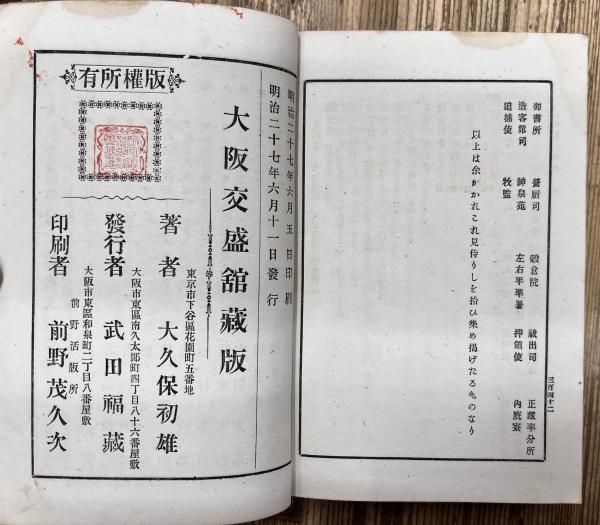 御書所 醫厨司 穀倉院 祓出司 正藏率分所
造客館司 神泉苑 左右平準署 押領使 內豎寮
追捕使 牧監
以上は余かかれこれ見侍りしを拾ひ集め揭げたるものなり
三百四十二
明治二十七年六月五日印刷
明治二十七年六月十一日發行
大阪交盛館藏版
東京市下谷區花園町五番地
著者 大久保初雄
大阪市東區南久太郎町四丁目八十六番屋敷
發行者 武田福藏
大阪市東區和泉町二丁目八番屋敷
前野活版所
印刷者 前野茂久次
版權所有